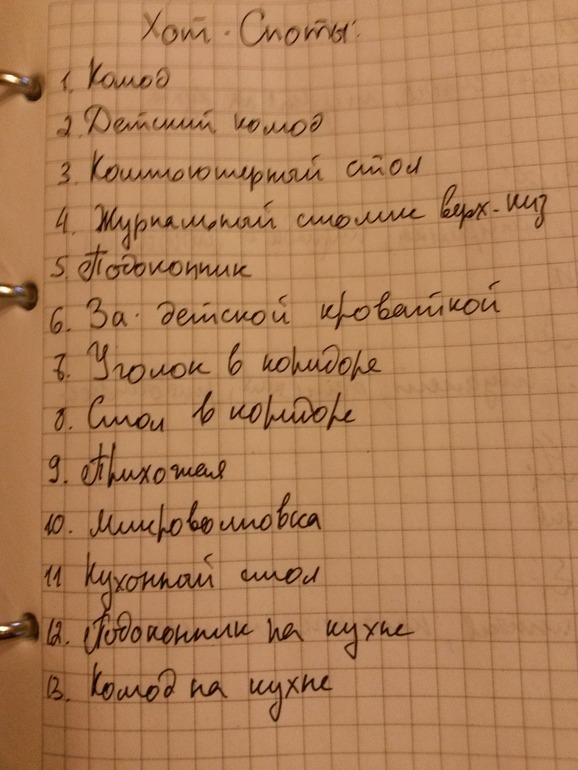 Хот-Споты:
1. Комод
2. Детский комод
3. Компьютерный стол
4. Журнальный столик верх-низ
5. Подоконник
6. За детской кроваткой
7. Уголок в коридоре
8. Стол в коридоре
9. Прихожая
10. Микроволновка
11 Кухонный стол
12. Подоконник на кухне
13. Комод на кухне